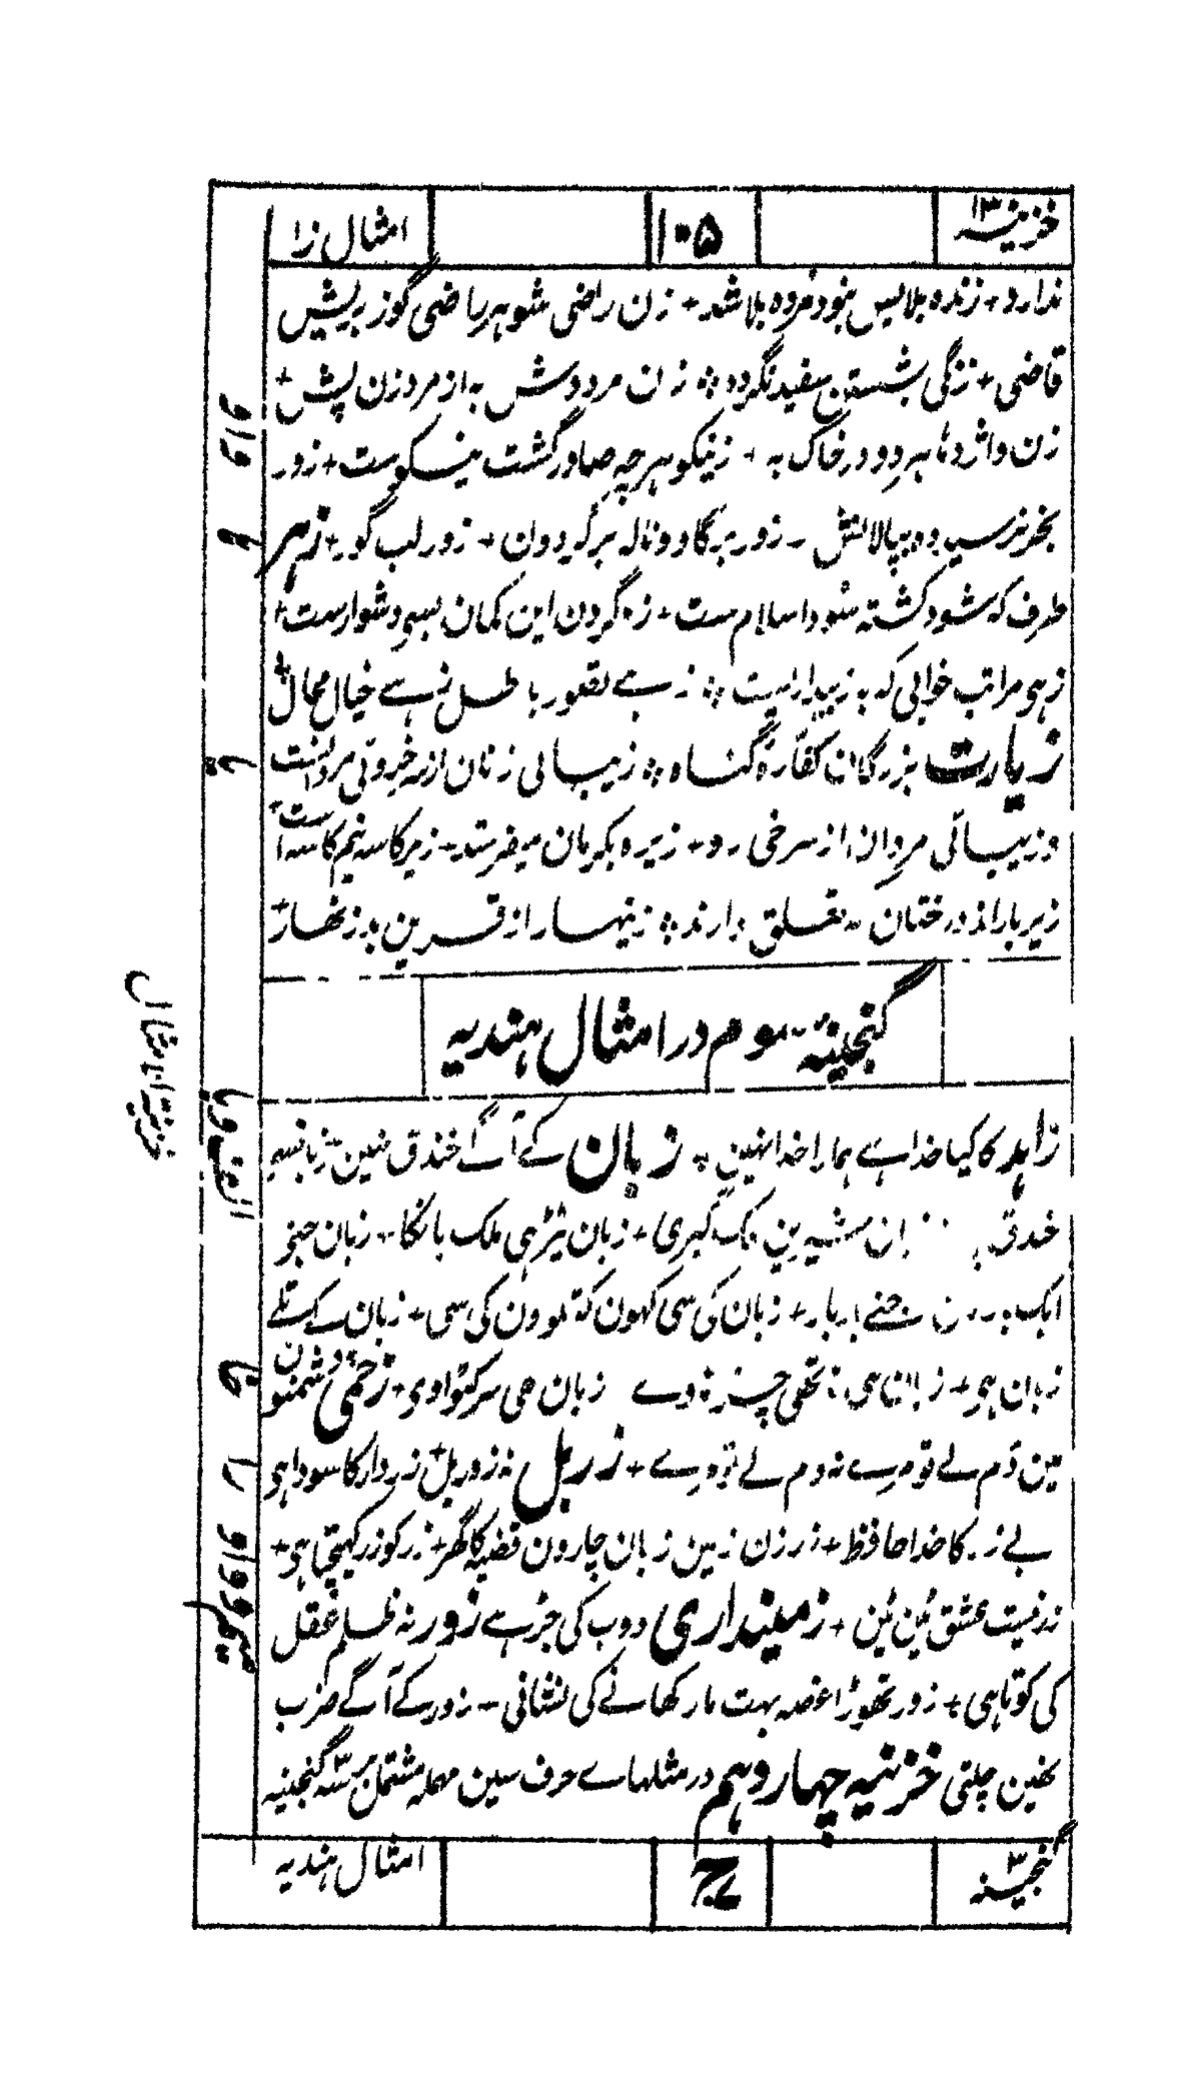 خزینہ ۱۳
۱۰۵
امثال زا
ندارد + زندہ بلا پس نبود مردہ بلا شد + زن راضی شوہر راضی گوز بریش
قاضی + زنگی بشستن سفید نگردد ❖ زن مرد وش به از مرد زن پش +
زن و اژدہا ہر دو در خاک به + زنیکو ہرچہ صادر گشت نیکوست + زور
بخر نرسید دوید بپالانش ـ زور بر گاو و ناله بر گردون + زور لب گور + زہر
طرف کہ شود کشتہ سود اسلام ست + زہ کردن این کمان بسی دشوارست +
زہی مراتب خوابی کہ به زبیداریست ❖ زہے تصور باطل زہے خیال محال +
زیارت بزرگان کفارۂ گناہ ❖ زیبائی زنان از
وزیبائی مردان از سرخی رو + زیرہ بکرمان میفرستد ـ زیر کاسہ نیم کاسہ است +
زیر بار اند درختان کہ تعلق دارند ❖ زینہار از قرین بد زنہار +
گنجینہ سوم در امثال ہندیہ
زاہد کا کیا خدا ہے ہمارا خدا نہین + زبان کے آگے خندق نہین + زبان ہے
خندق + شیرین ملک گیری + زبان ٹیڑہی ملک بانکا + زبان جنے
ایک بار جنے بار بار + زبان کی سی کہون کہ تلوون کی سی + زبان کے تلے
زبان ہی + زبان ہی ہاتھی چڑہاوے زبان ہی سر کٹواوی + زخمی دشمنون
مین دم لے تو مرے نہ دم لے تو مرے + زر بل نہ زور بل + زردار کا سودا ہی
بے زر کا خدا حافظ + زر زن زمین زبان چارون قضیہ کا گھر + زر کو زر کھینچتا ہی +
زر نیست عشق ٹین ٹین + زمینداری دوب کی جڑ ہے زور نہ ظلم عقل
کی کوتاہی + زور تھوڑا غصہ بہت مار کھانے کی نشانی ـ زور کے آگے ضرب
نہین چلتی خزینہ چہاردہم در مثلہاے حرف سین مہملہ مشتمل برسہ گنجینہ
گنجینہ ۳
ج
امثال ہندیہ
واو
ہا
یا
خزینۃ الامثال
الف و با
خا
را
میم و واو